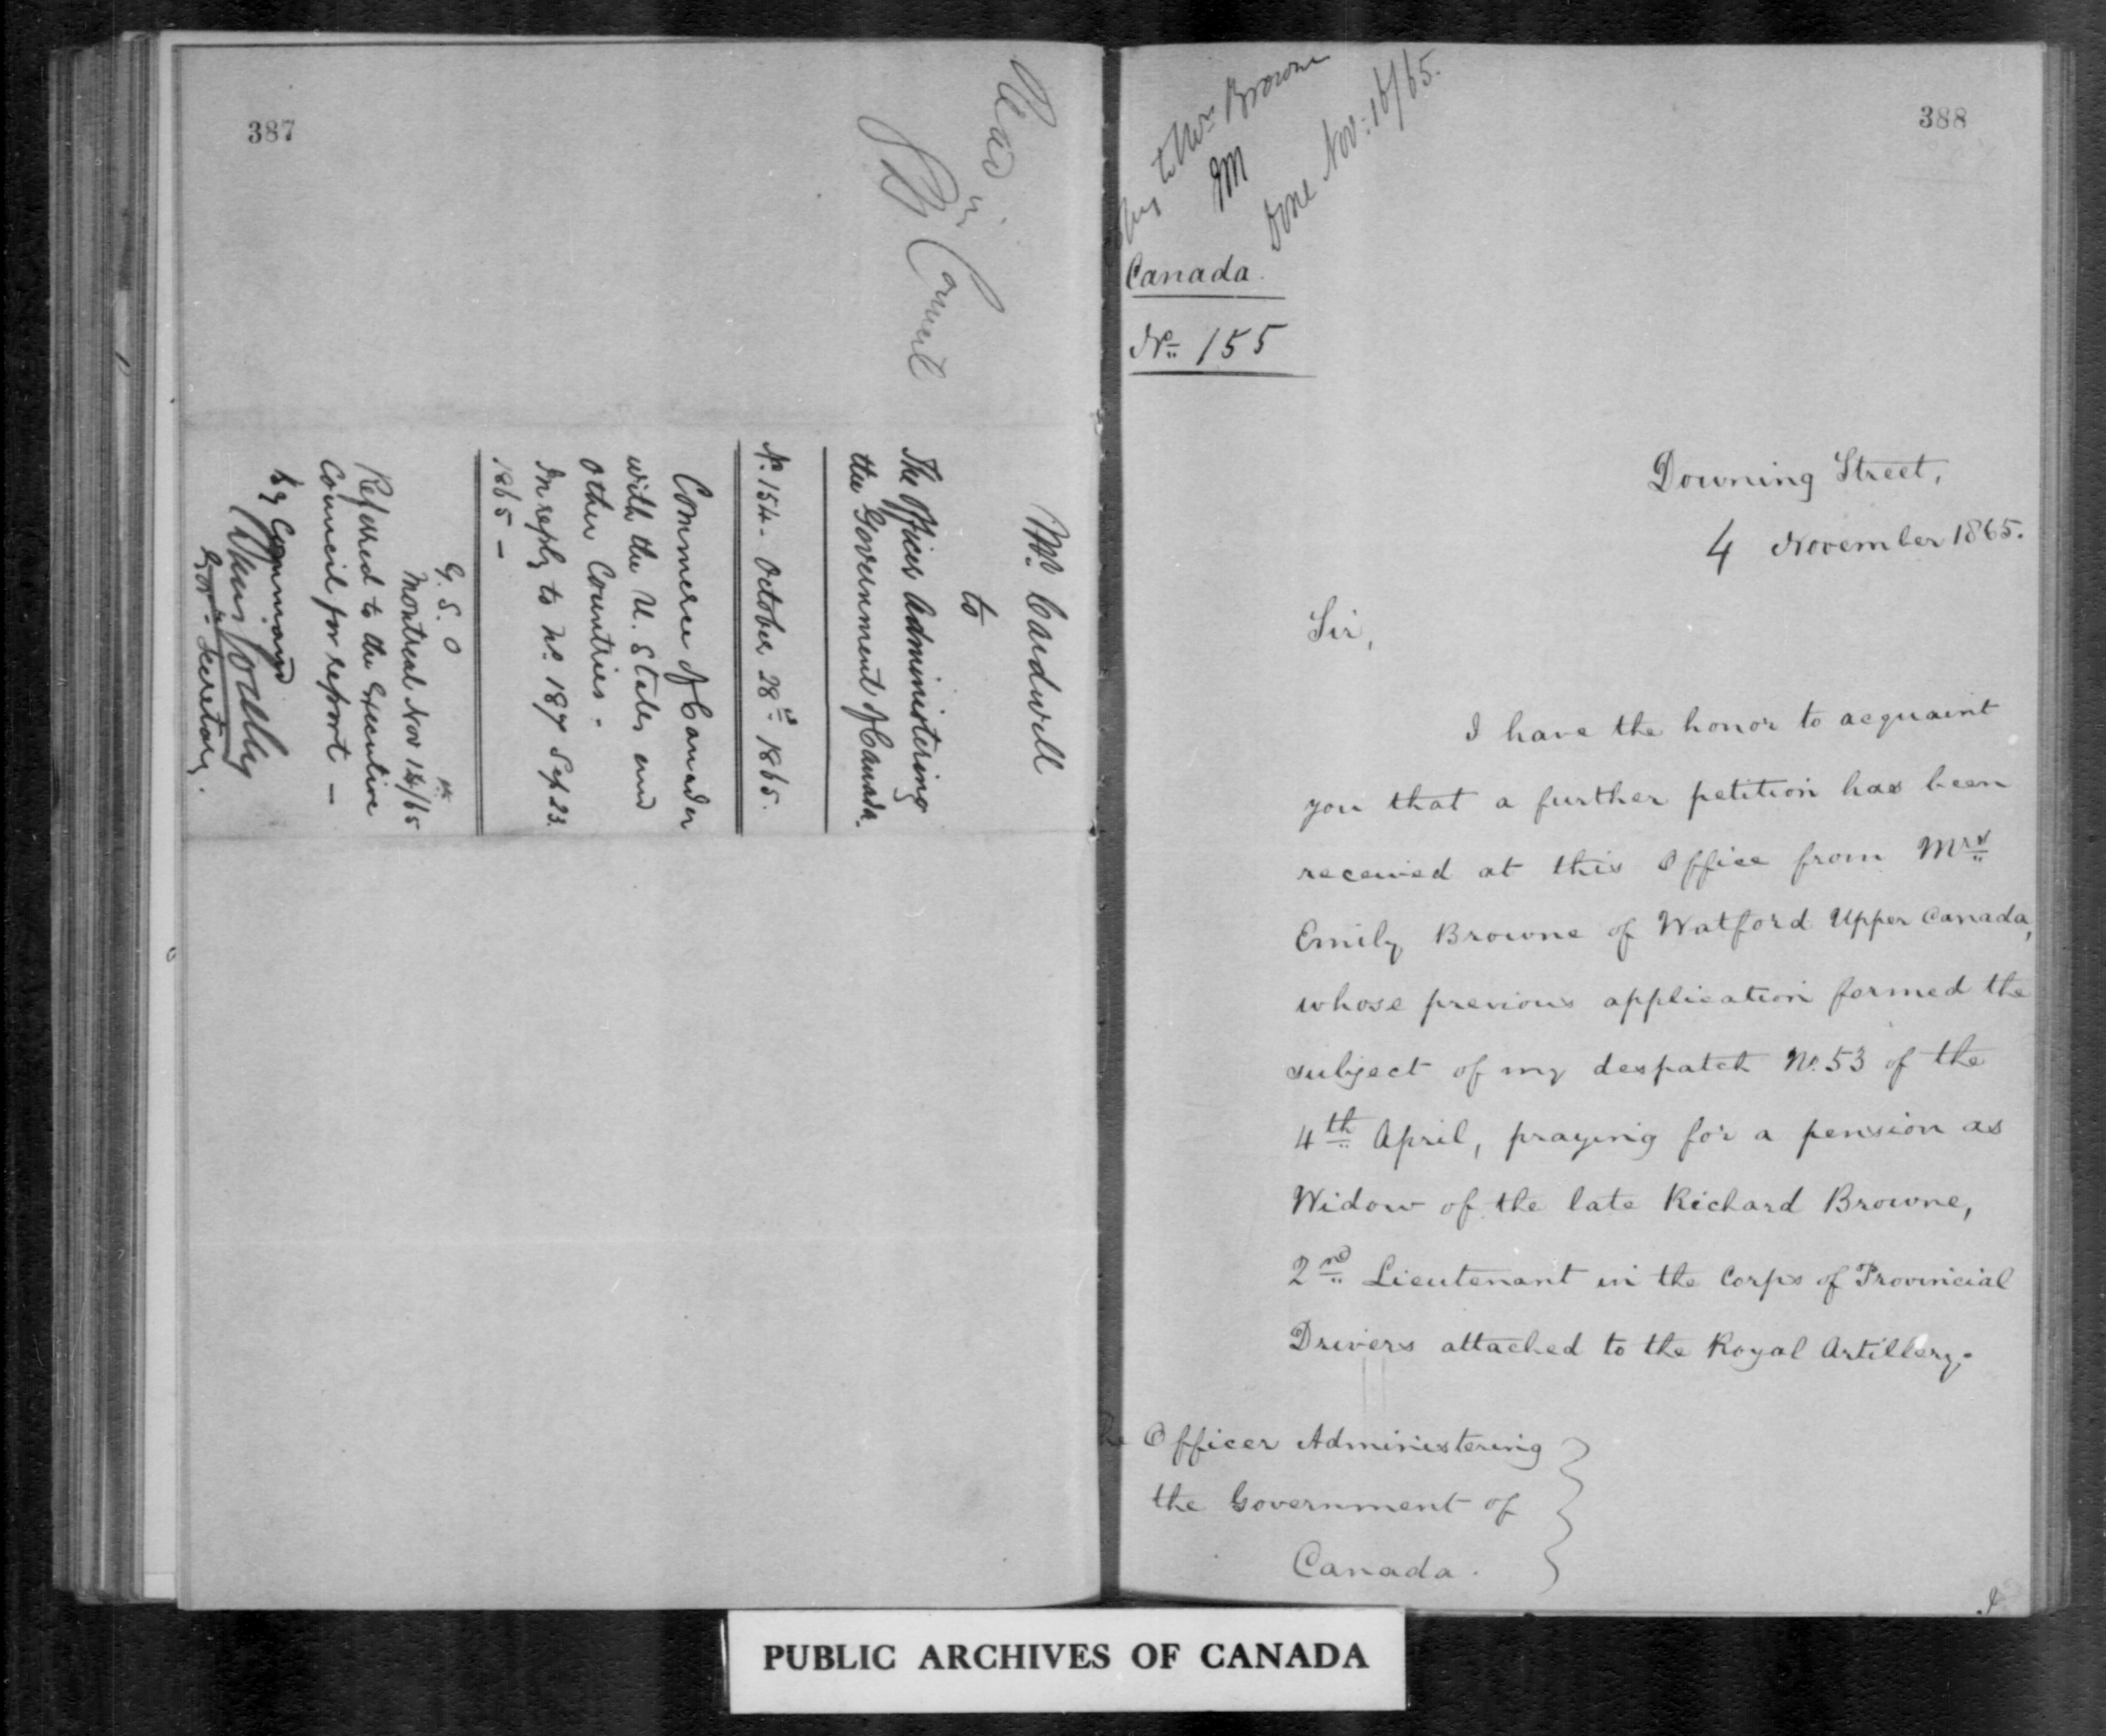 387
Read in
Council
Mr. Cardwell
to
The Officer Administering
the Government of Canada.
No. 154. October 28th 1865.
Commerce of Canada
with the U. States and
Other Countries.
In reply to No. 187 Sep 23.
1865 —
G. S. O
Montreal Nov 14th/65
Referred to the Executive
Council for report —
By Command
Denis Godley
Govr. Secretary.
388
to Mrs Browne
Done Nov: 16/65.
Canada.
No. 155
Downing Street,
4 November 1865.
Sir,
I have the honor to acquaint
you that a further petition has been
received at this Office from Mrs
Emily Browne of Watford Upper Canada,
whose previous application formed the
subject of my despatch No. 53 of the
4th April, praying for a pension as
Widow of the late Richard Browne,
2nd Lieutenant in the Corps of Provincial
Drivers attached to the Royal Artillery.
he Officer Administering
the Government of
Canada.
I
PUBLIC ARCHIVES OF CANADA